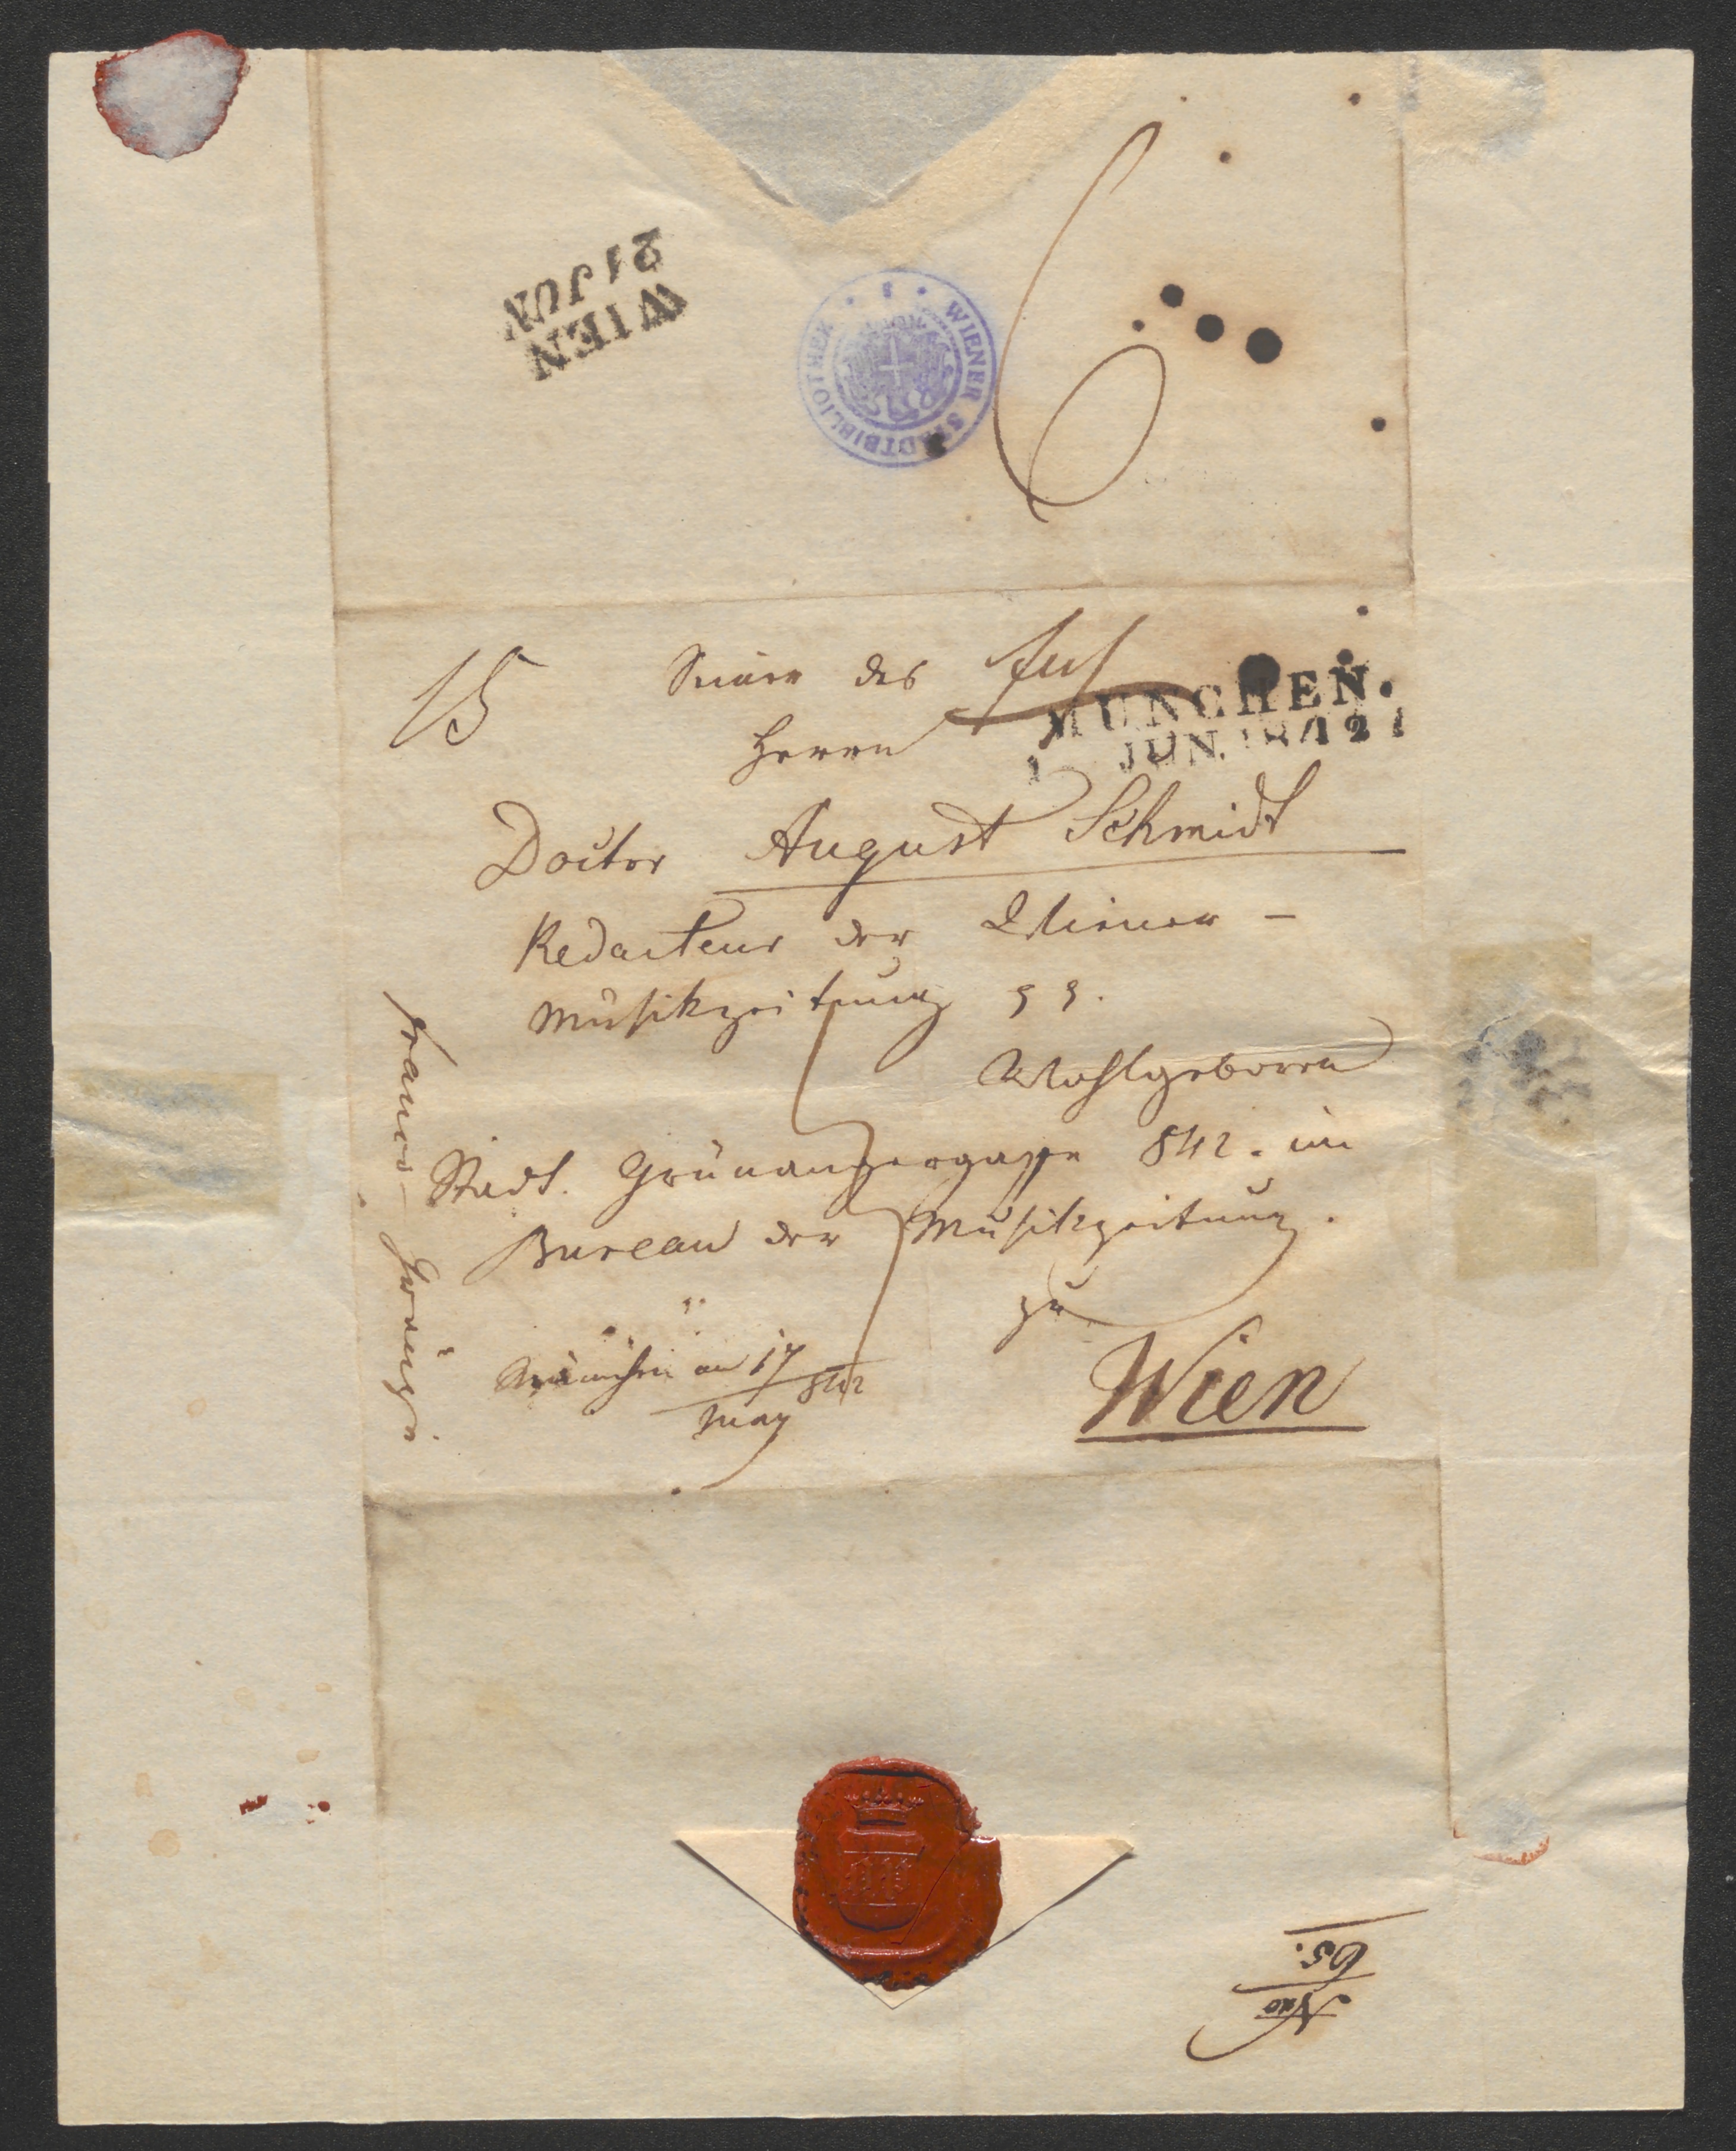 WIEN
21 JUN
WIENER STADTBIBLIOTHEK
6
15
Seiner des
MÜNCHEN.
JUN. 1842
Herrn
Doctor August Schmidt
Redacteur der Wiener -
Musikzeitung
Wohlgeboren
Stadt. Grünangergasse 842. im
Bureau der Musikzeitung.
zu
Wien
München am 17
May 842
franco Gränze
Nro
65.